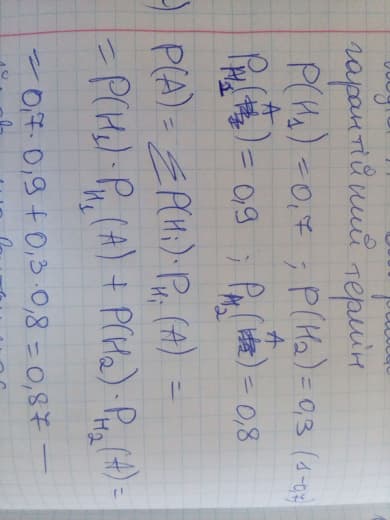 гарантійний термін
P(H₁) = 0,7 ; P(H₂) = 0,3 (1-0,7)
P_H₁(A) = 0,9 ; P_H₂(A) = 0,8
) P(A) = ∑ P(Hᵢ)·P_Hᵢ(A) =
= P(H₁)·P_H₁(A) + P(H₂)·P_H₂(A) =
= 0,7·0,9 + 0,3·0,8 = 0,87 —